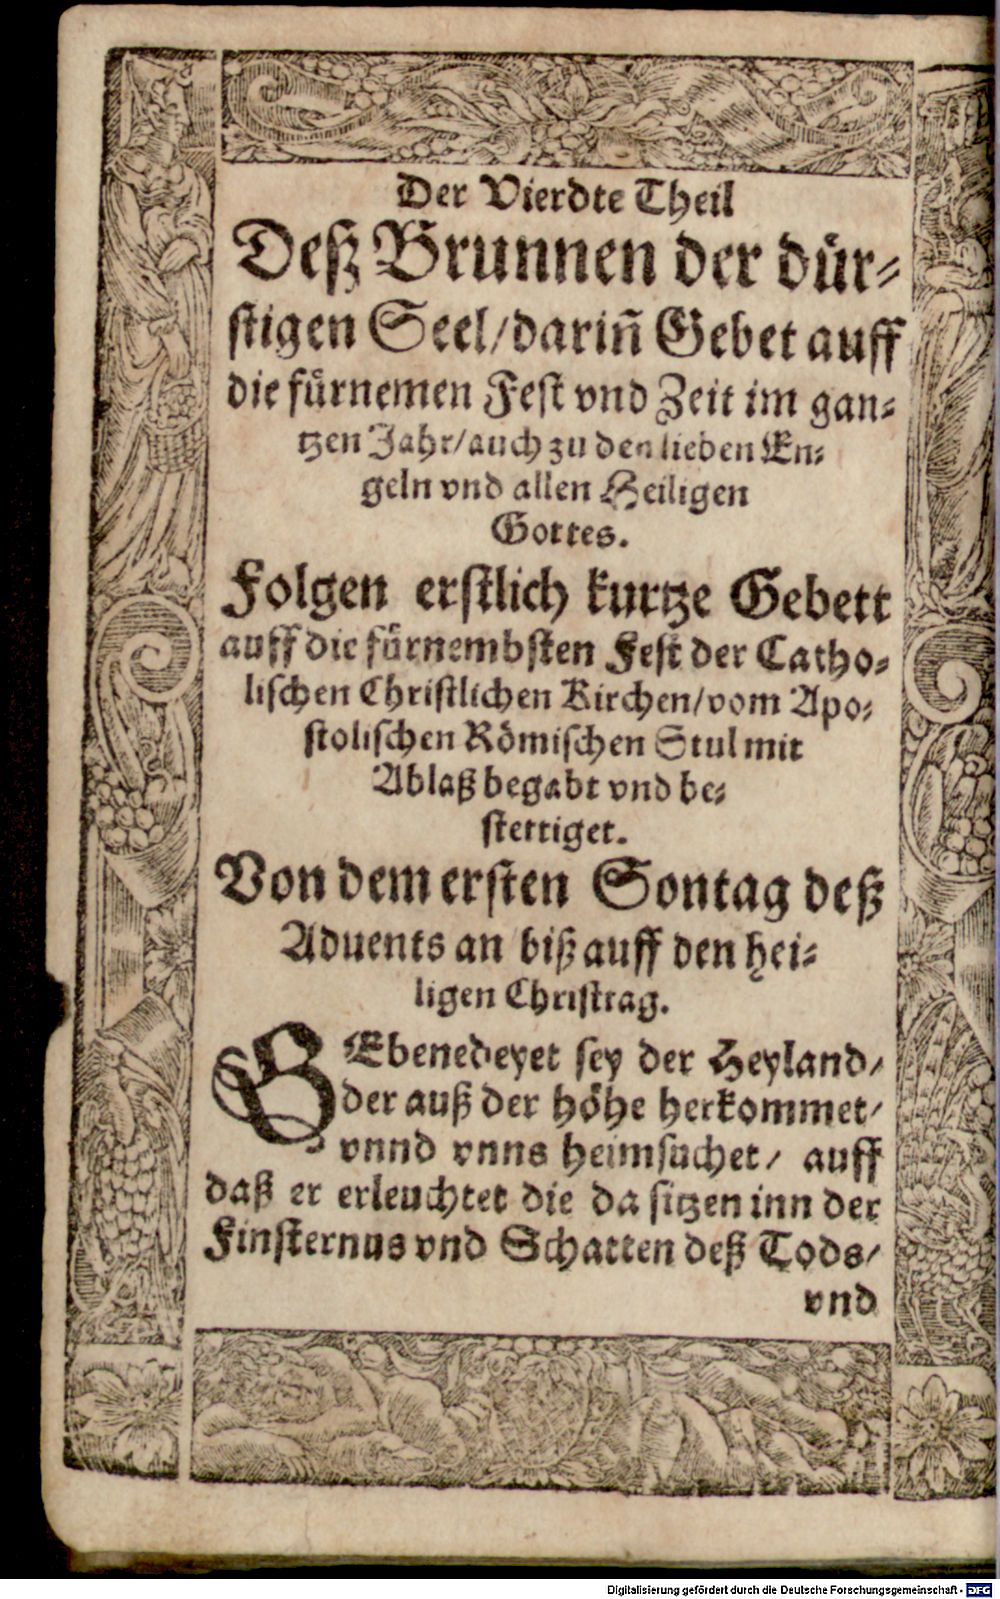 Der Vierdte Theil
Deß Brunnen der dür⸗
stigen Seel/ darin̄ Gebet auff
die fürnemen Fest vnd Zeit im gan⸗
tzen Jahr/ auch zu den lieben En⸗
geln vnd allen Heiligen
Gottes.
Folgen erstlich kurtze Gebett
auff die fürnembsten Fest der Catho⸗
lischen Christlichen Kirchen/ vom Apo⸗
stolischen Römischen Stul mit
Ablaß begabt vnd be⸗
stettiget.
Von dem ersten Sontag deß
Aduents an biß auff den hei⸗
ligen Christtag.
GEbenedeyet sey der Heyland/
der auß der höhe herkommet/
vnnd vnns heimsuchet/ auff
daß er erleuchtet die da sitzen inn der
Finsternus vnd Schatten deß Tods/
vnd
Digitalisierung gefördert durch die Deutsche Forschungsgemeinschaft - DFG